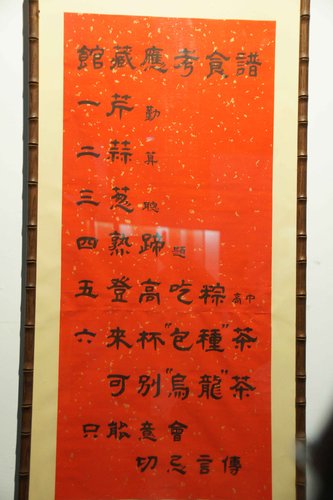 館藏應考食譜
一芹勤
二蒜算
三葱聰
四熟蹄題
五登高吃粽高中
六來杯"包種"茶
可別"烏龍"茶
只能意會
切忌言傳